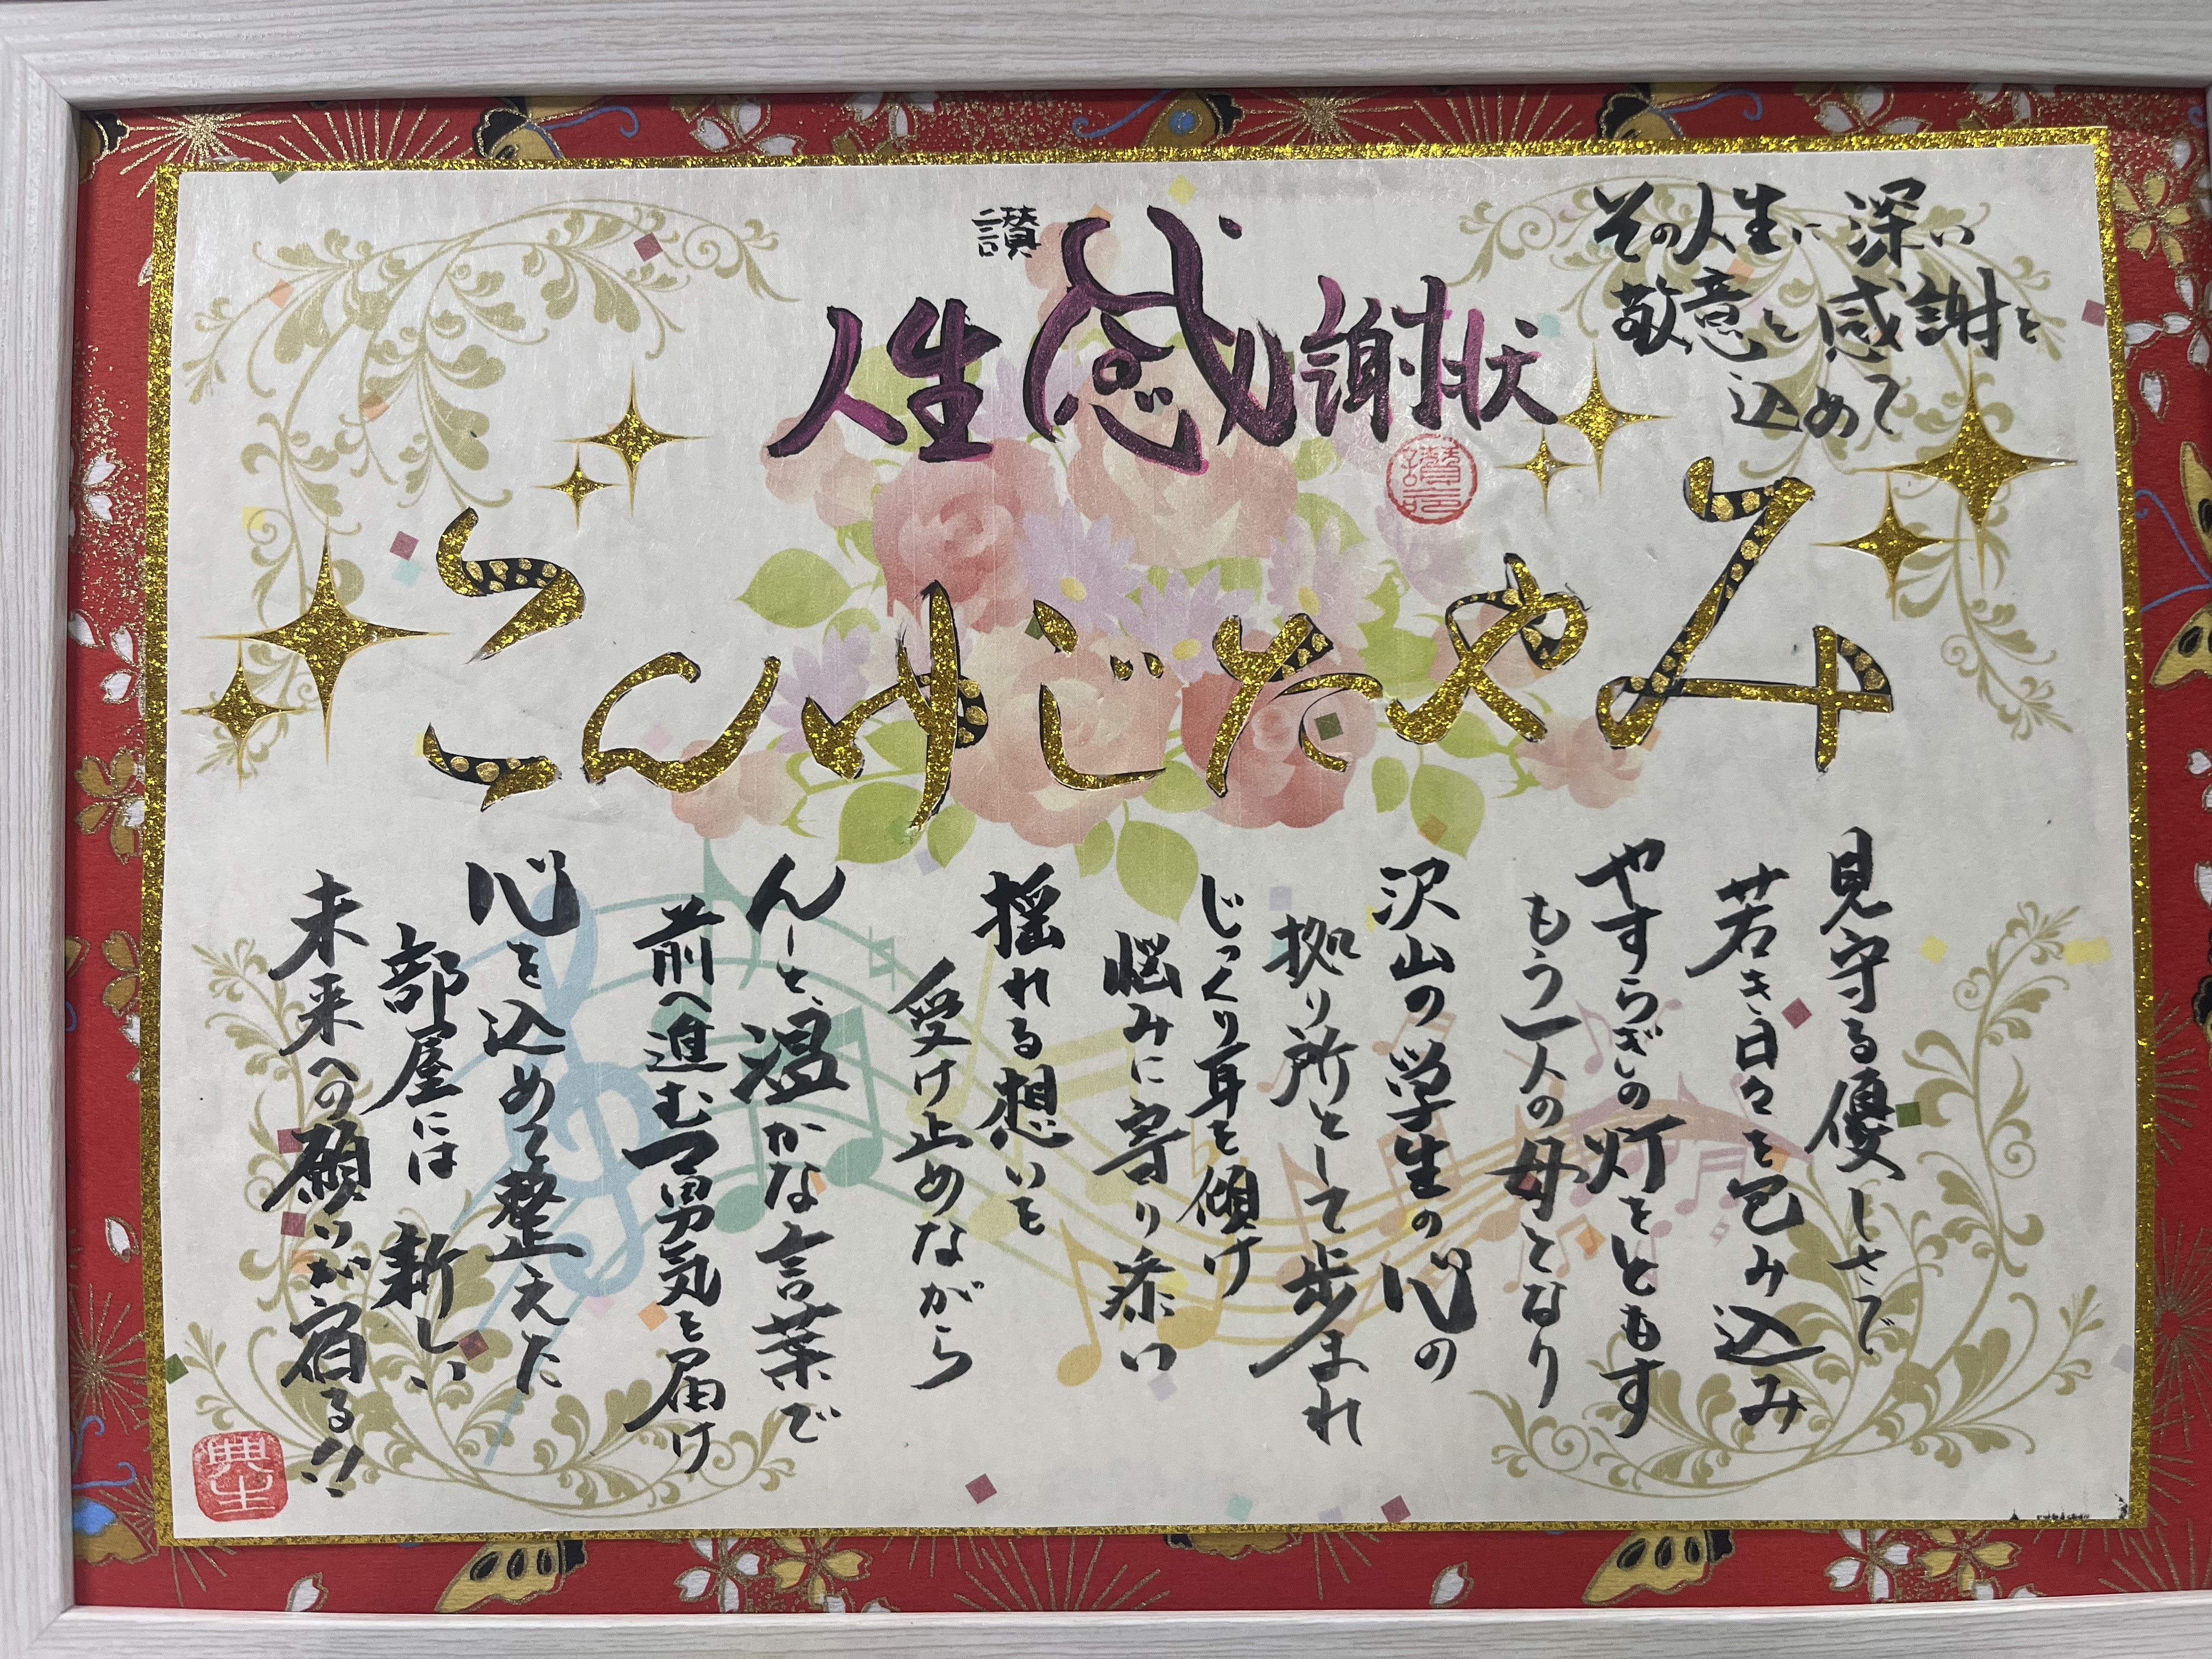 讃
人生感謝状
その人生に深い
敬意と感謝を
込めて
みやたじゆんこ
見守る優しさで
若き日々を包み込み
やすらぎの灯をともす
もう一人の母となり
沢山の学生の心の
拠り所として歩まれ
じっくり耳を傾け
悩みに寄り添い
揺れる想いを
受け止めながら
んーと、温かな言葉で
前へ進む勇気を届け
心を込めて整えた
部屋には新しい
未来への願いが宿る!!
典生